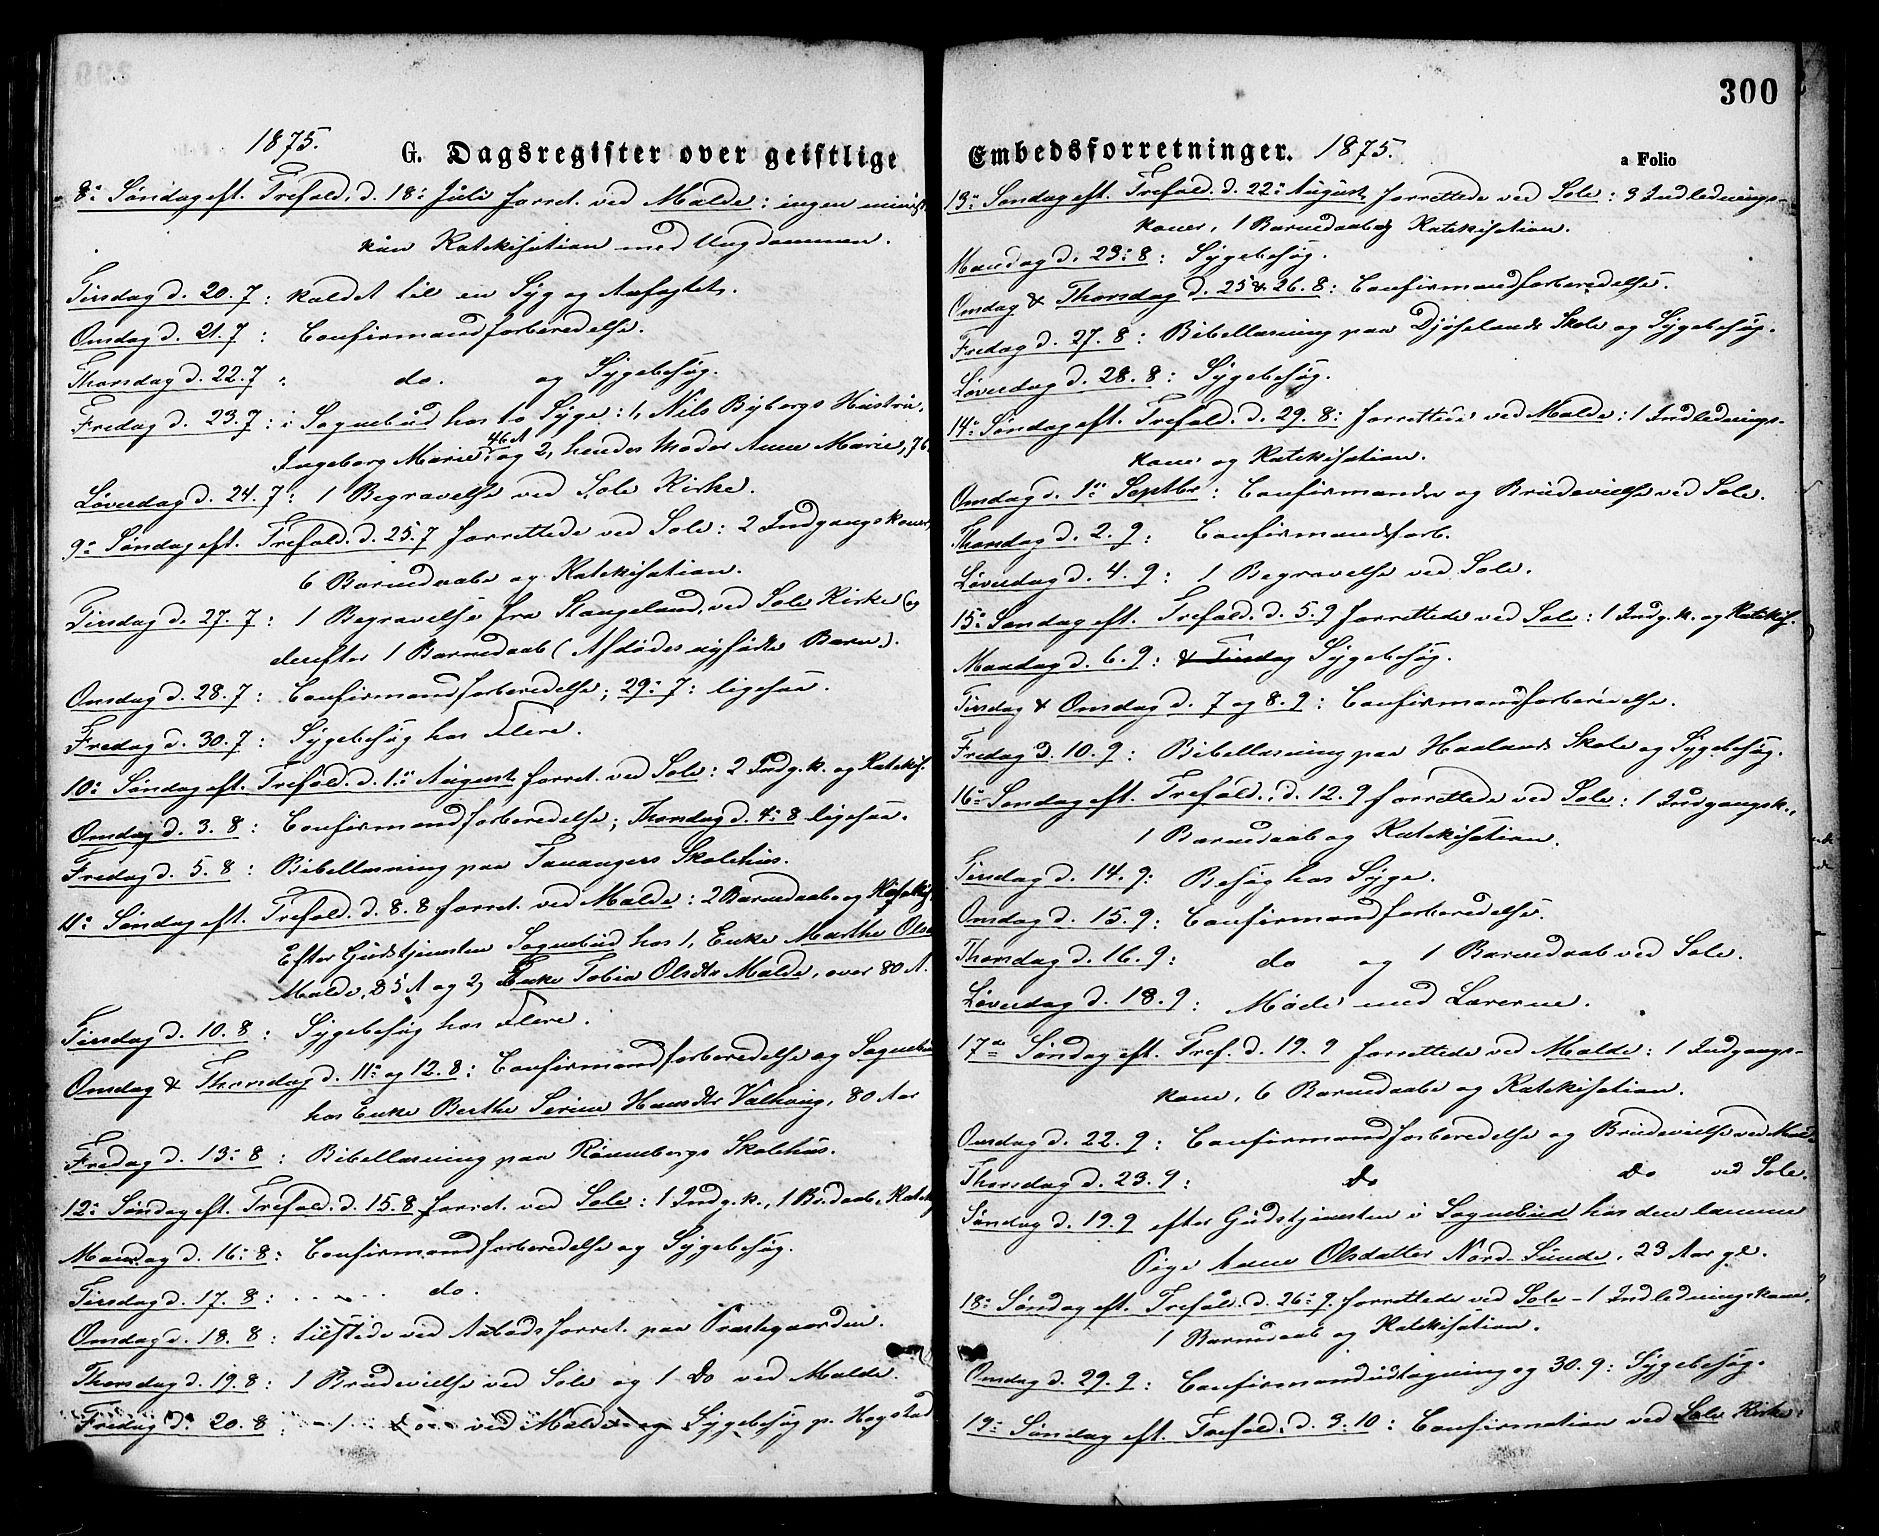 1875. G. Dagsregister over geistlige
8: Søndag eft. Trefold. d. 18: Juli forret. ved Malde: ingen minist.
kun Katekisation med Ungdommen.
Tirsdag d. 20. 7: kaldet til en Syg og Anfægtet.
Onsdag d. 21. 7: Confirmandforberedelse.
Thorsdag d. 22. 7: do. og Sygebesøg.
Fredag d. 23. 7: i Sognebud hos to Syge: 1, Nils Bybergs Hustru,
Ingeborg Marie, 46 A og 2, hendes Moder Anne Marie, 76
Løverdag d. 24. 7: 1 Begravelse ved Sole Kirke.
9: Søndag eft. Trefold. d. 25. 7 forrettede ved Sole: 2 Indgangskoner,
6 Barnedaabe og Katekisation.
Tirsdag d. 27. 7: 1 Begravelse fra Stangeland, ved Sole Kirke og
derefter 1 Barnedaab (Afdødes nyfødte Barn).
Onsdag d. 28. 7: Confirmandforberedelse; 29: 7: ligesaa.
Fredag d. 30. 7: Sygebesøg hos Flere.
10: Søndag eft. Trefold. d. 1: August forret. ved Sole: 2 Indg.k. og Katekis.
Onsdag d. 3. 8: Confirmandforberedelse; Thorsdag d. 4: 8 ligesaa.
Fredag d. 5. 8: Bibellæsning paa Tanangers Skolehus.
11: Søndag eft. Trefold. d. 8. 8 forret. ved Malde: 2 Barnedaabe og
Efter Gudstjenesten Sognebud hos 1, Enke Marthe Olsd
Malde, 85 A og 2, Enke Tobia Olsdtr Malde, over 80 A.
Tirsdag d. 10. 8: Sygebesøg hos Flere.
Onsdag & Thorsdag d. 11: og 12. 8: Confirmandforberedelse og Sognebud
hos Enke Berthe Serine Hansdtr Valhoug, 80 Aar
Fredag d. 13: 8: Bibellæsning paa Rønnebergs Skolehus.
12: Søndag eft. Trefold. d. 15. 8 forret. ved Sole: 1 Indg.k., 1 B.daab, Katek
Mandag d. 16: 8: Confirmandforberedelse og Sygebesøg.
Tirsdag d. 17. 8: do.
Onsdag d. 18. 8: tilstede ved Aabodsforret. paa Præstegaarden.
Thorsdag d. 19. 8: 1 Brudevielse ved Sole og 1 Do ved Malde.
Fredag d. 20. 8: 1 do ved Malde og Sygebesøg p. Hogstad
300
Embedsforretninger. 1875. a Folio
13: Søndag eft. Trefold. d. 22: August forrettede ved Sole: 3 Indlednings-
koner, 1 Barnedaab og Katekisation.
Mandag d. 23: 8: Sygebesøg.
Onsdag & Thorsdag d. 25 & 26. 8: Confirmandforberedelse.
Fredag d. 27. 8: Bibellæsning paa Djøselands Skole og Sygebesøg.
Løverdag d. 28. 8: Sygebesøg.
14: Søndag eft. Trefold. d. 29. 8: forrettede ved Malde: 1 Indlednings-
kone og Katekisation.
Onsdag d. 1: Septbr: Confirmander og Brudevielse ved Sole.
Thorsdag d. 2. 9: Confirmandforb.
Løverdag d. 4. 9: 1 Begravelse ved Sole.
15: Søndag eft. Trefold. d. 5. 9 forrettede ved Sole: 1 Indg.k. og Katekis.
Mandag d. 6. 9: & Tirsdag Sygebesøg.
Tirsdag & Onsdag d. 7 og 8. 9: Confirmandforberedelse.
Fredag d. 10. 9: Bibellæsning paa Haalands Skole og Sygebesøg.
16: Søndag eft. Trefold. d. 12. 9 forrettede ved Sole: 1 Indgangsk.,
1 Barnedaab og Katekisation.
Tirsdag d. 14. 9: Besøg hos Syge.
Onsdag d. 15. 9: Confirmandforberedelse.
Thorsdag d. 16. 9: do og 1 Barnedaab ved Sole.
Løverdag d. 18. 9: Møde med Lærerne.
17de Søndag eft. Tref. d. 19. 9 forrettede ved Malde: 1 Indgangs-
kone, 6 Barnedaabe og Katekisation.
Onsdag d. 22. 9: Confirmandforberedelse og Brudevielse ved Malde
Thorsdag d. 23. 9: Do Do ved Sole.
Søndag d. 19. 9 efter Gudstjenesten i Sognebud hos den lamme
Pige Anne Olsdatter Nord-Sunde, 23 Aar gl.
18: Søndag eft. Trefold. d. 26: 9. forrettede ved Sole - 1 Indledningskone,
1 Barnedaab og Katekisation.
Onsdag d. 29. 9: Confirmandudtagning og 30. 9: Sygebesøg.
19: Søndag eft. Trefold. d. 3. 10: Confirmation ved Sole Kirke.